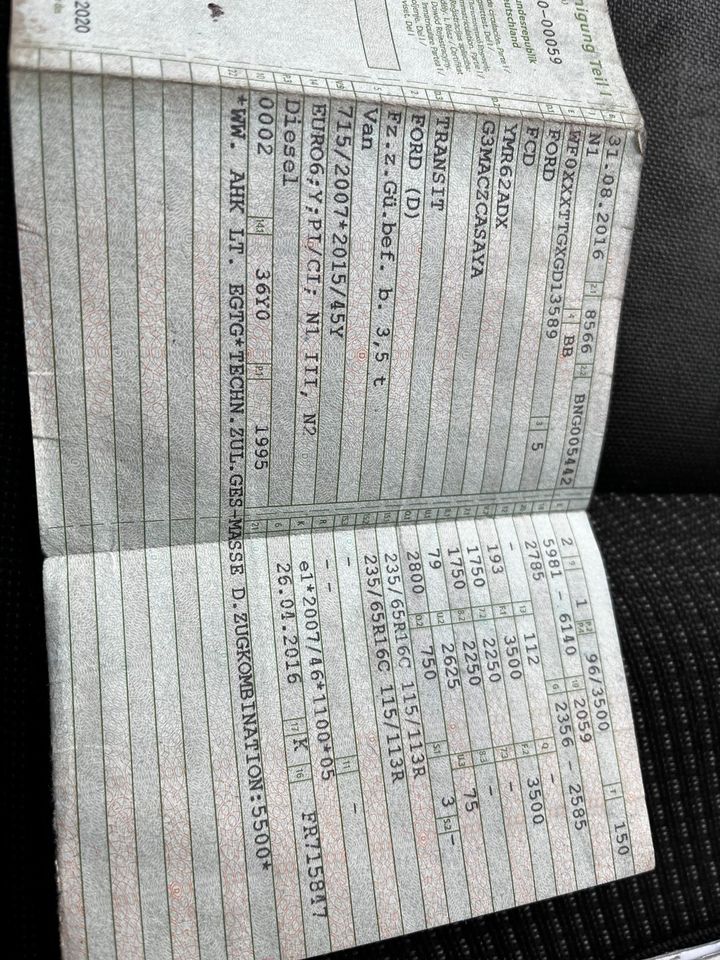 nigung Teil I
undesrepublik
eutschland
0-00059
2020
31.08.2016 21 8566 22 BNG005442
N1
WF0XXXTTGXGD13589 BB
FORD 3 5
FCD
YMR62ADX
G3MACZCASAYA
TRANSIT
FORD (D)
Fz.z.Gü.bef. b. 3,5 t
Van
715/2007*2015/45Y
EURO6;Y;PI/CI; N1 III, N2
Diesel
0002 36Y0 P.1 1995
*WW. AHK LT. EGTG*TECHN.ZUL.GES-MASSE D.ZUGKOMBINATION:5500*
2 9 1 96/3500 T 150
5981 - 6140 2059
2785 2356 - 2585
- 112 -
193 3500 3500
1750 2250 -
1750 2250 -
79 2625 75
2800 750 3 -
235/65R16C 115/113R
235/65R16C 115/113R
- -
- -
e1*2007/46*1100*05
26.04.2016 17 K 16 FR715847